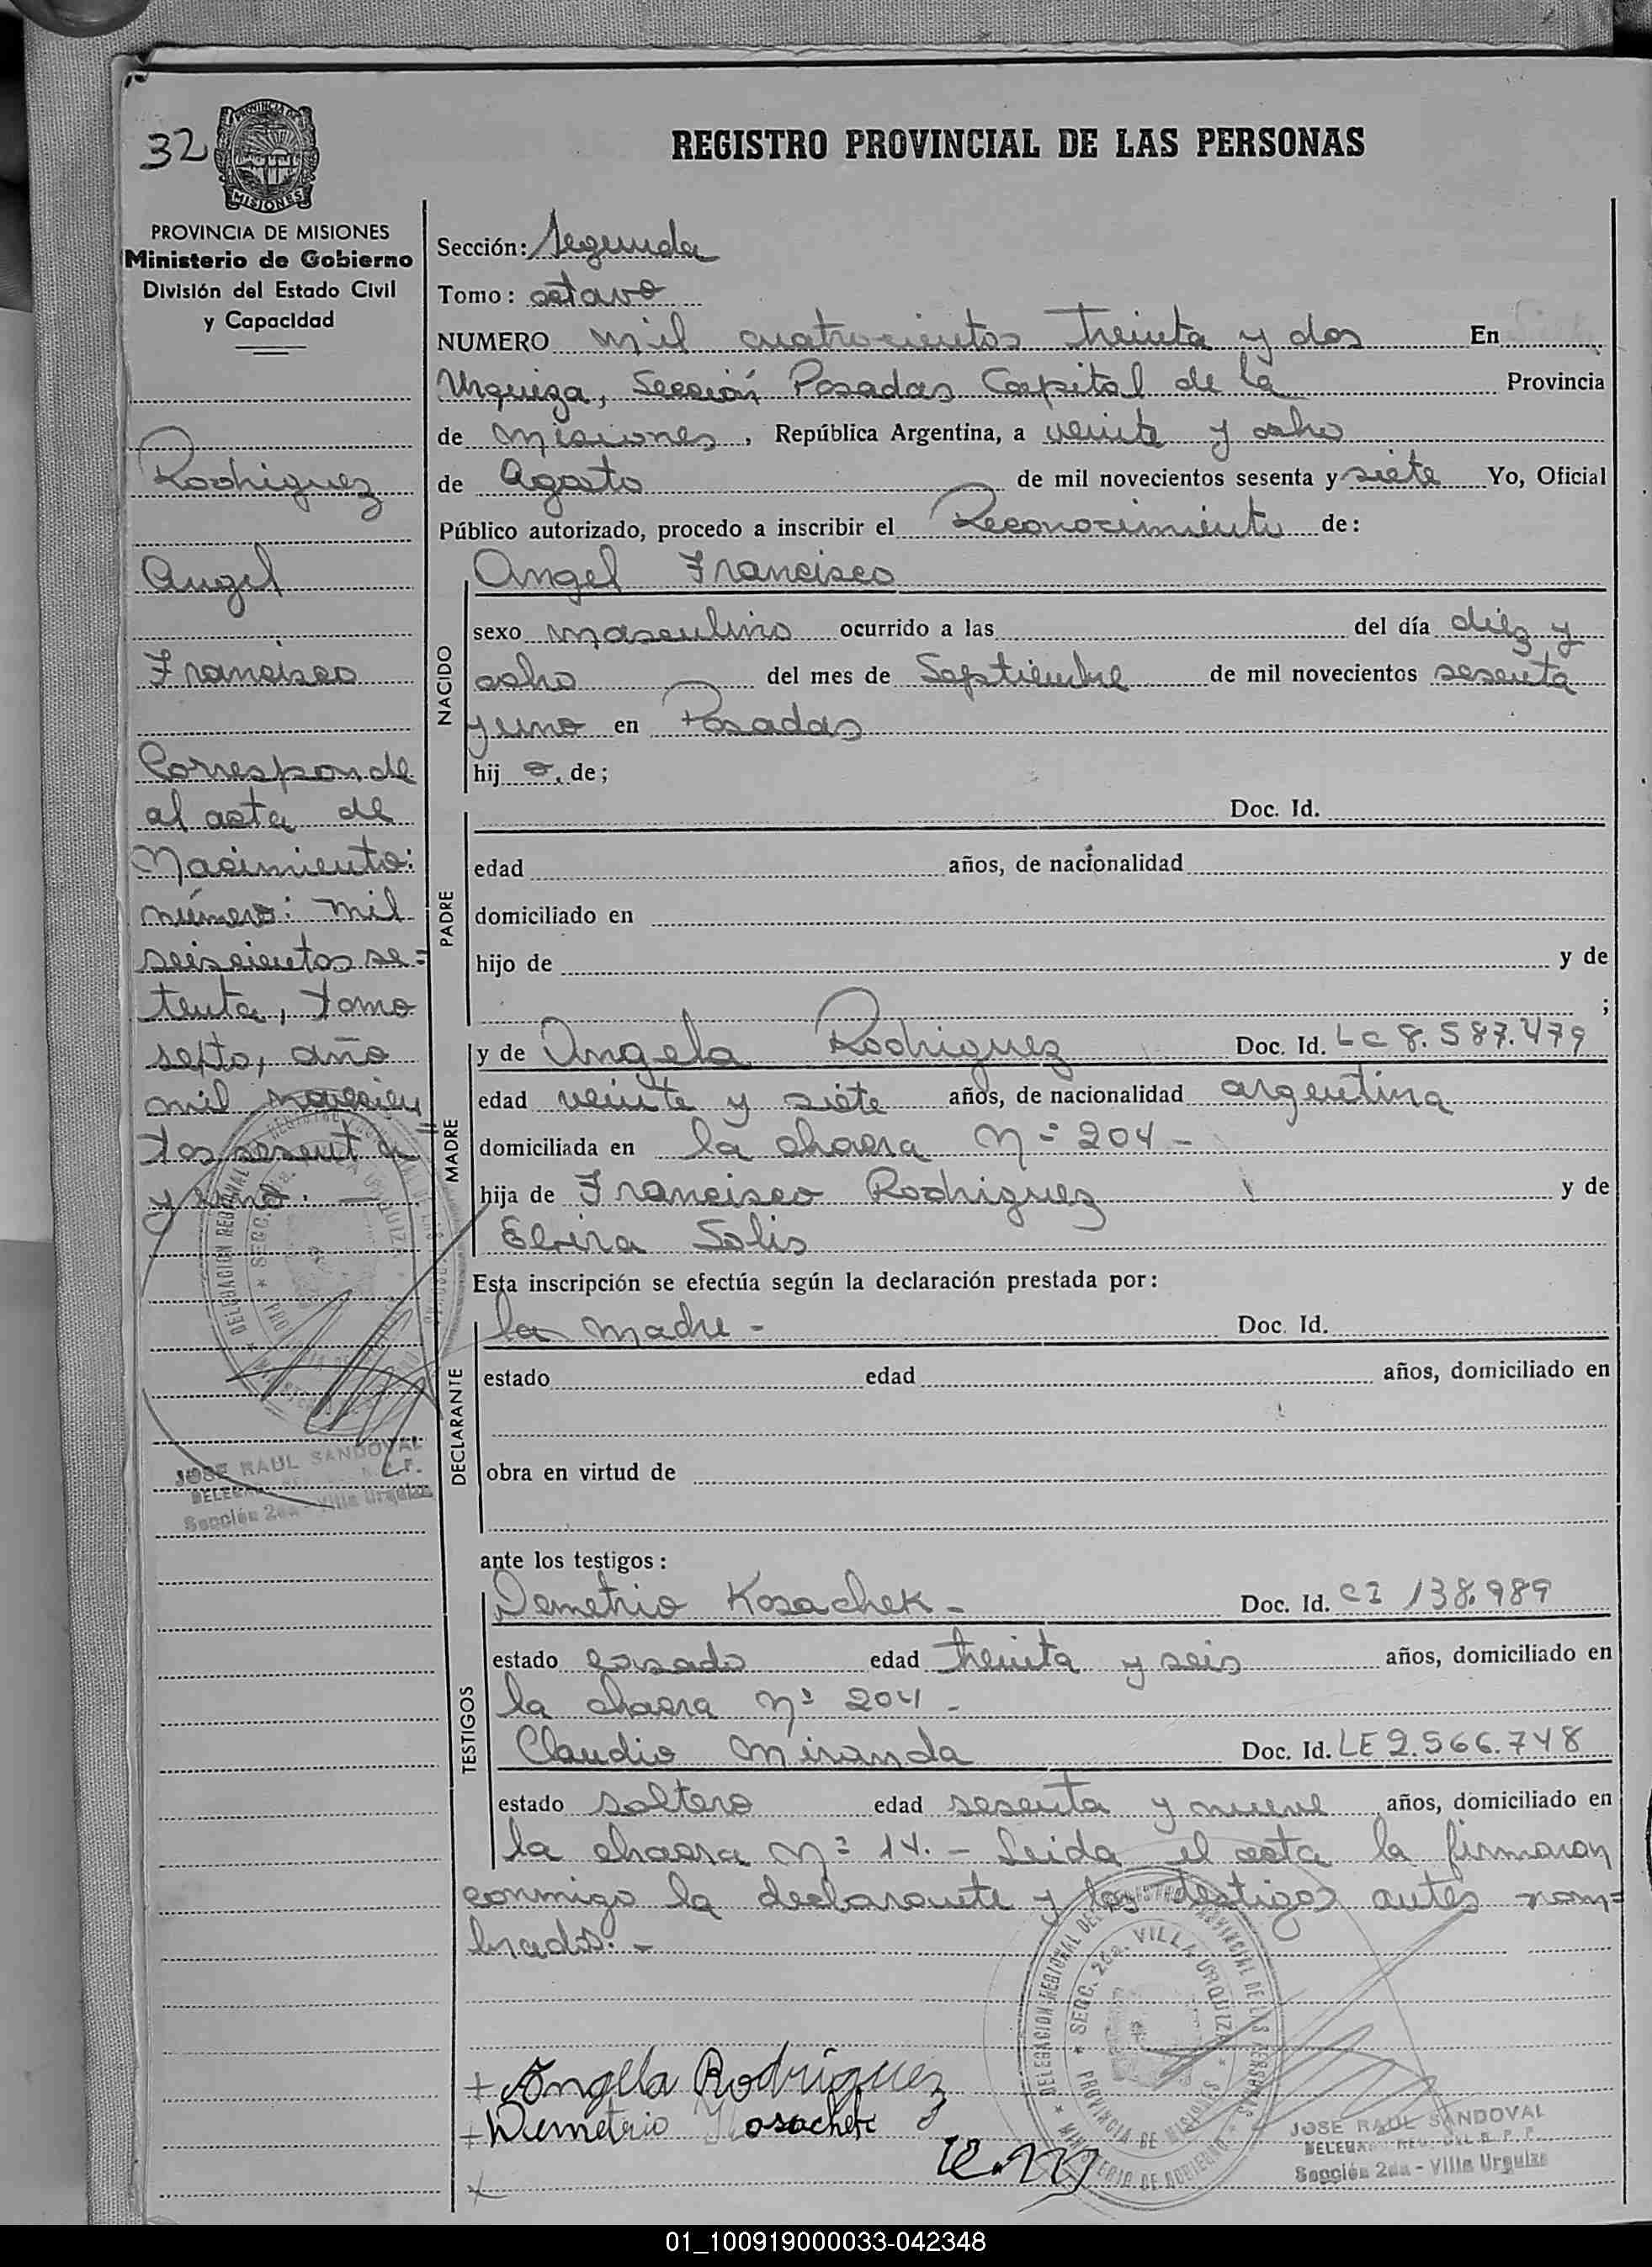 32
PROVINCIA DE
MISIONES
REGISTRO PROVINCIAL DE LAS PERSONAS
PROVINCIA DE MISIONES
Ministerio de Gobierno
División del Estado Civil
y Capacidad
Rodriguez
Angel
Francisco
Corresponde
al acta de
Nacimiento:
número: mil
seiscientos se=
tenta, tomo
septo, año
mil novecien=
tos sesenta
y uno. —
JOSE RAUL SANDOVAL
Sección 2da - Villa Urquiza
Sección: Segunda
Tomo: octavo
NUMERO mil cuatrocientos treinta y dos En
Urquiza, Sección Posadas Capital de la Provincia
de Misiones, República Argentina, a veinte y ocho
de Agosto de mil novecientos sesenta y siete Yo, Oficial
Público autorizado, procedo a inscribir el Reconocimiento de:
NACIDO
Angel Francisco
sexo masculino ocurrido a las del día diez y
ocho del mes de Septiembre de mil novecientos sesenta
y uno en Posadas
hij o, de;
PADRE
Doc. Id.
edad años, de nacionalidad
domiciliado en
hijo de y de
;
MADRE
y de Angela Rodriguez Doc. Id. LC 8.587.479
edad veinte y siete años, de nacionalidad argentina
domiciliada en la chacra Nº 204 -
hija de Francisco Rodriguez y de
Elvira Solis
Esta inscripción se efectúa según la declaración prestada por:
DECLARANTE
la madre - Doc. Id.
estado edad años, domiciliado en
obra en virtud de
ante los testigos:
TESTIGOS
Demetrio Kosachek - Doc. Id. CI 138.989
estado casado edad treinta y seis años, domiciliado en
la chacra Nº 204 -
Claudio Miranda Doc. Id. LE 2.566.748
estado soltero edad sesenta y nueve años, domiciliado en
la chacra Nº 14. - Leida el acta la firmaron
conmigo la declarante y los testigos antes nom=
brados. -
DELEGACION REGIONAL DEL REGISTRO PROVINCIAL DE LAS PERSONAS
SECC. 2da. VILLA URQUIZA
PROVINCIA DE MISIONES
MINISTERIO DE GOBIERNO
+ Angela Rodriguez
+ Demetrio Kosachek
JOSE RAUL SANDOVAL
Sección 2da - Villa Urquiza
01_100919000033-042348